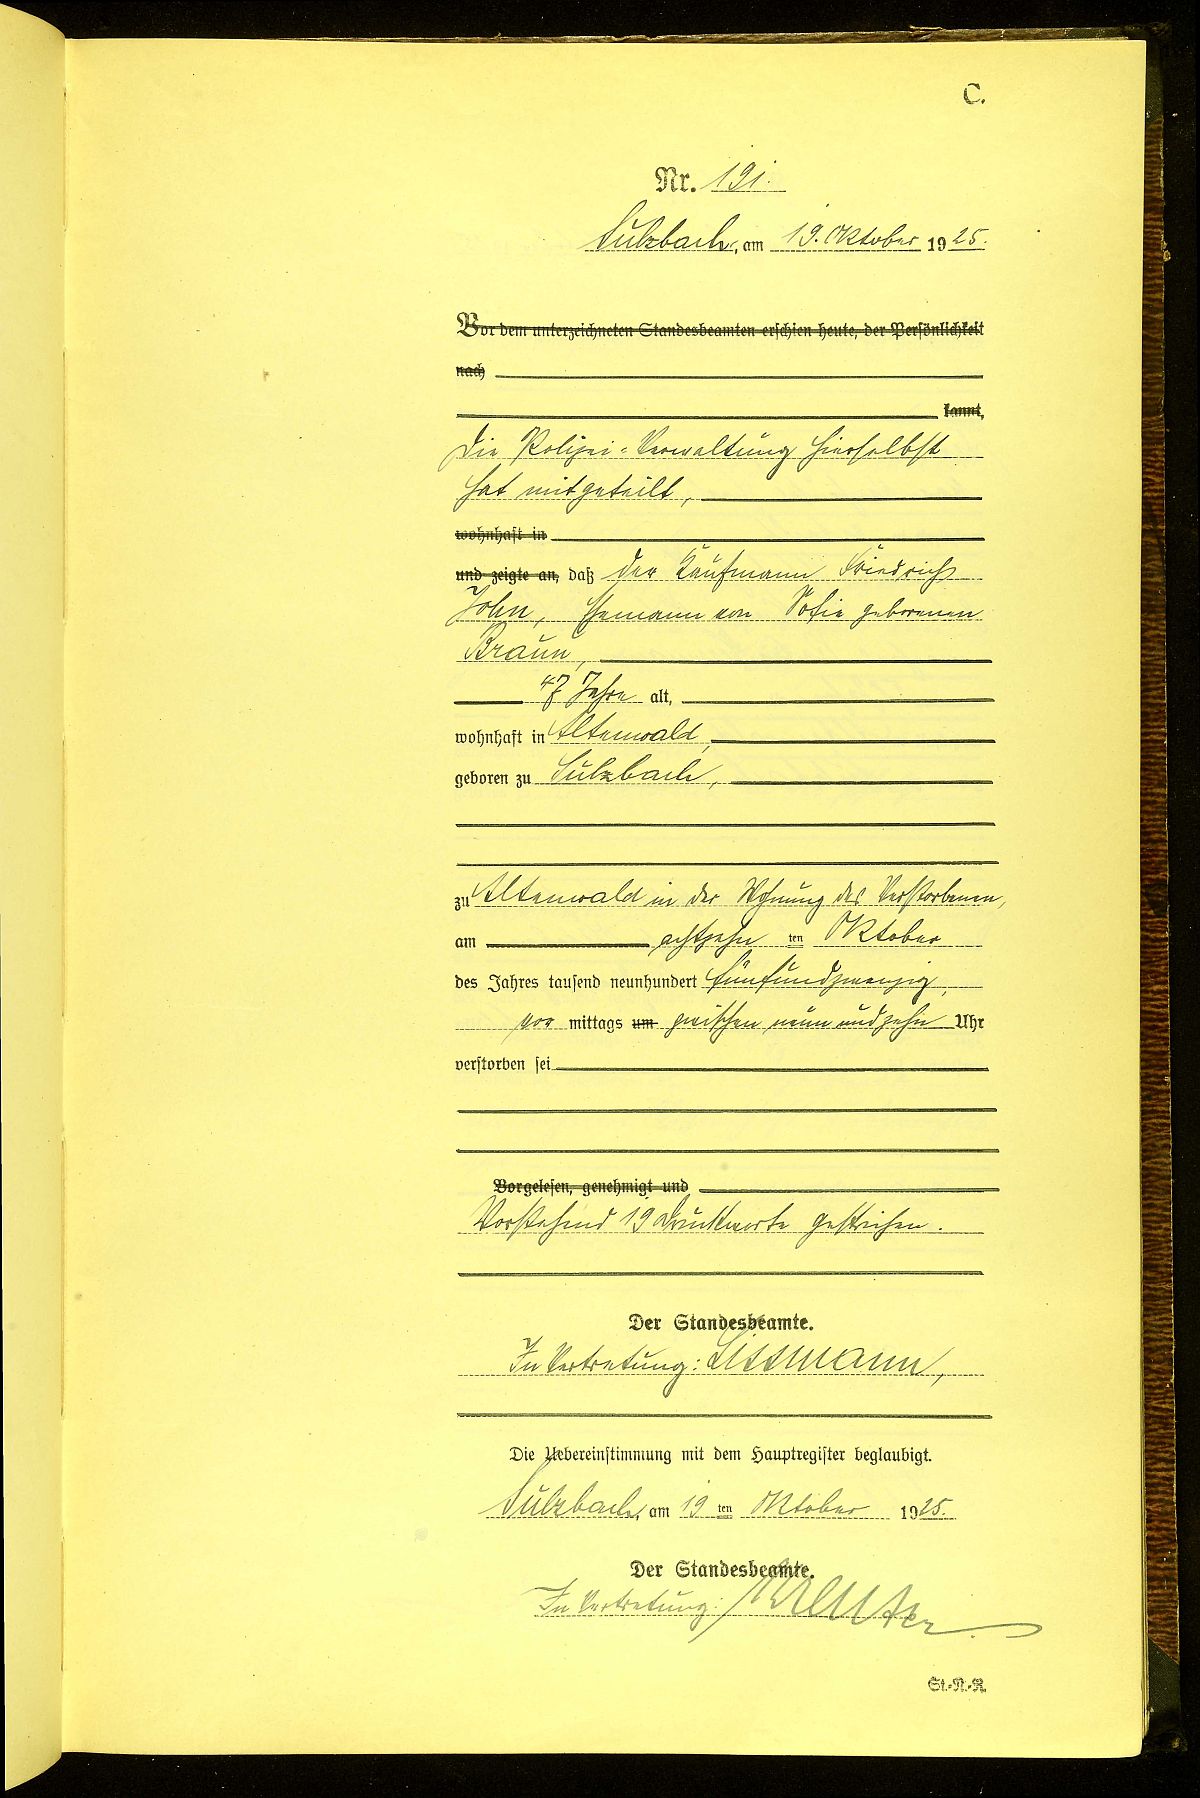 C.
Nr. 191.
Sulzbach, am 19. Oktober 1925.
Vor dem unterzeichneten Standesbeamten erschien heute, der Persönlichkeit
nach
kannt,
Die Polizei-Verwaltung hierselbst
hat mitgeteilt,
wohnhaft in
und zeigte an, daß der Kaufmann Friedrich
John, Ehemann von Sofie geborenen
Braun,
47 Jahre alt,
wohnhaft in Altenwald,
geboren zu Sulzbach,
zu Altenwald in der Wohnung des Verstorbenen,
am achtzehn ten Oktober
des Jahres tausend neunhundert fünfundzwanzig,
vor mittags um zwischen neun und zehn Uhr
verstorben sei
Vorgelesen, genehmigt und
Vorstehend 19 Druckworte gestrichen.
Der Standesbeamte.
In Vertretung: Lissmann,
Die Uebereinstimmung mit dem Hauptregister beglaubigt.
Sulzbach, am 19 ten Oktober 1925.
Der Standesbeamte.
In Vertretung:
St.-N.-R.